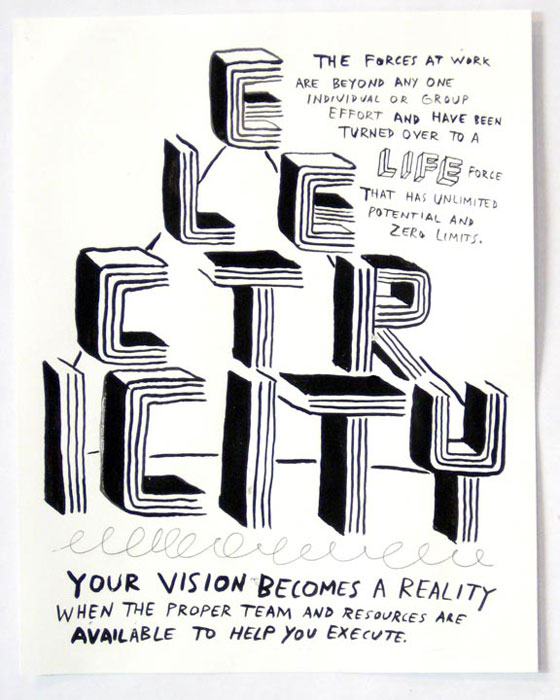 THE FORCES AT WORK
ARE BEYOND ANY ONE
INDIVIDUAL OR GROUP
EFFORT AND HAVE BEEN
TURNED OVER TO A
LIFE FORCE
THAT HAS UNLIMITED
POTENTIAL AND
ZERO LIMITS.
E
LE
CTR
ICITY
YOUR VISION BECOMES A REALITY
WHEN THE PROPER TEAM AND RESOURCES ARE
AVAILABLE TO HELP YOU EXECUTE.